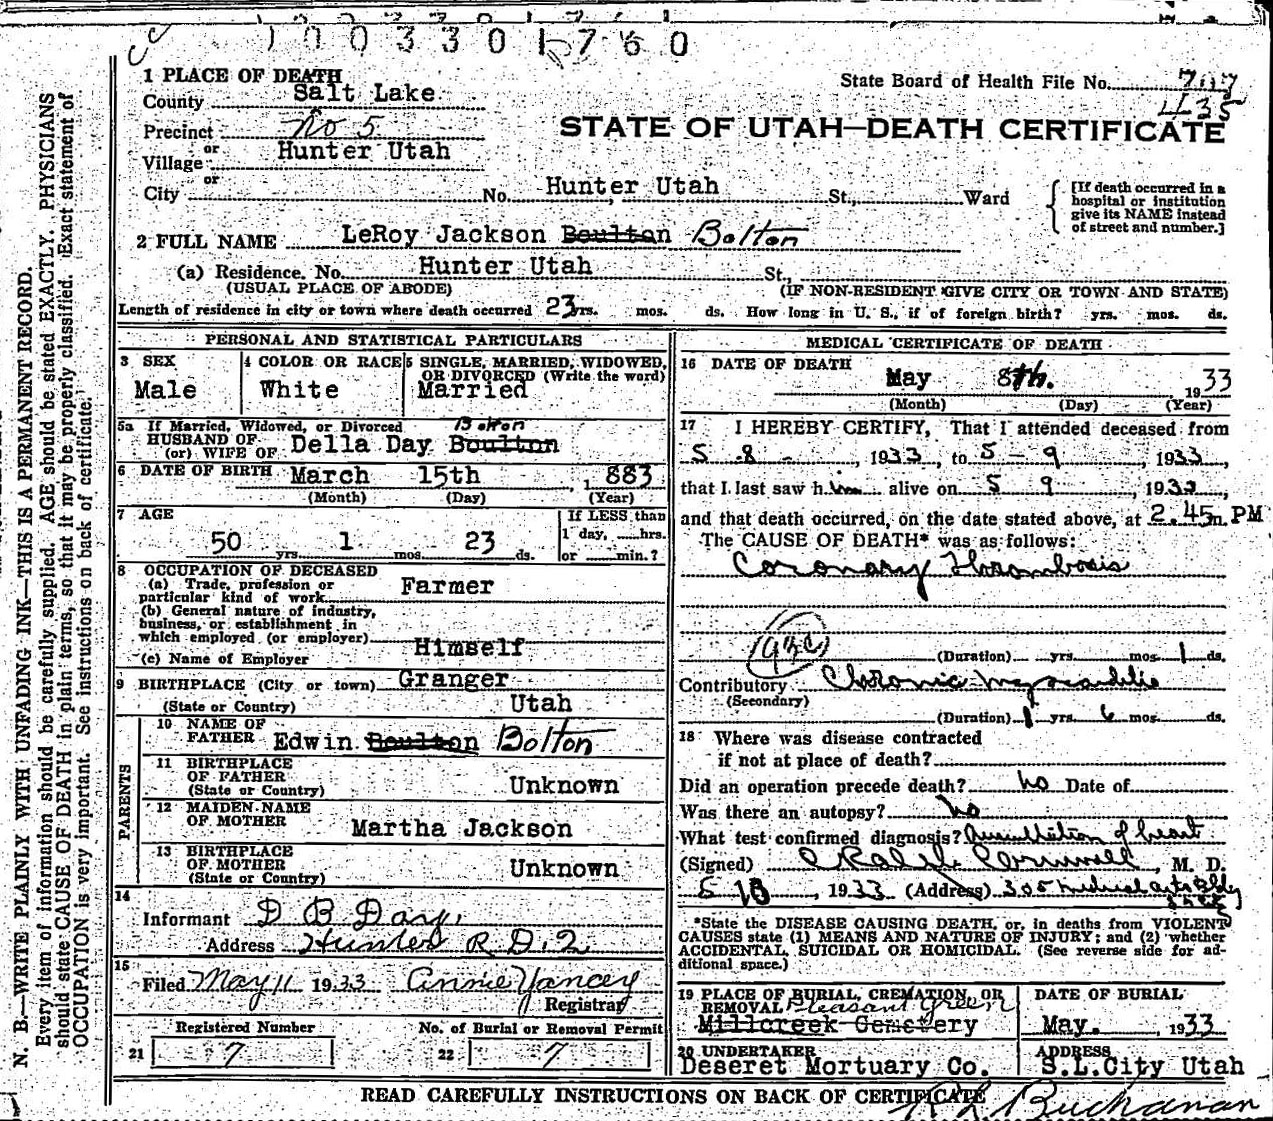 1003301760
1 PLACE OF DEATH
State Board of Health File No.
435
County Salt Lake
Precinct No 5
STATE OF UTAH—DEATH CERTIFICATE
or
Village Hunter Utah
or
City No. Hunter Utah St., Ward
[If death occurred in a hospital or institution give its NAME instead of street and number.]
2 FULL NAME LeRoy Jackson Boulton Bolton
(a) Residence. No. Hunter Utah St.,
(USUAL PLACE OF ABODE) (IF NON-RESIDENT GIVE CITY OR TOWN AND STATE)
Length of residence in city or town where death occurred 23 yrs. mos. ds. How long in U. S., if of foreign birth? yrs. mos. ds.
PERSONAL AND STATISTICAL PARTICULARS
3 SEX
Male
4 COLOR OR RACE
White
5 SINGLE, MARRIED, WIDOWED,
OR DIVORCED (Write the word)
Married
5a If Married, Widowed, or Divorced Bolton
HUSBAND OF
(or) WIFE OF Della Day Boulton
6 DATE OF BIRTH March 15th, 1883
(Month) (Day) (Year)
7 AGE
50 yrs. 1 mos. 23 ds.
If LESS than
1 day, hrs.
or min.?
8 OCCUPATION OF DECEASED
(a) Trade, profession or
particular kind of work Farmer
(b) General nature of industry,
business, or establishment in
which employed (or employer) Himself
(c) Name of Employer
9 BIRTHPLACE (City or town) Granger
(State or Country) Utah
PARENTS
10 NAME OF
FATHER Edwin Boulton Bolton
11 BIRTHPLACE
OF FATHER
(State or Country) Unknown
12 MAIDEN NAME
OF MOTHER Martha Jackson
13 BIRTHPLACE
OF MOTHER
(State or Country) Unknown
14
Informant D B Day
Address Hunter R D. 2
15
Filed May 11 1933 Annie Yancey
Registrar
Registered Number
21 7
No. of Burial or Removal Permit
22 7
MEDICAL CERTIFICATE OF DEATH
16 DATE OF DEATH
May 8th. 1933
(Month) (Day) (Year)
17 I HEREBY CERTIFY, That I attended deceased from
5 - 8 -, 1933, to 5 - 9, 1933,
that I last saw him alive on 5 9, 1933,
and that death occurred, on the date stated above, at 2.45m. PM
The CAUSE OF DEATH* was as follows:
Coronary Thrombosis
(Duration) yrs. mos. 1 ds.
Contributory Chronic Myocarditis
(Secondary)
(Duration) 1 yrs. 6 mos. ds.
18 Where was disease contracted
if not at place of death?
Did an operation precede death? no Date of
Was there an autopsy? no
What test confirmed diagnosis? Auscultation of heart
(Signed) , M. D.
1933 (Address) 305 Medical Arts Bldg
*State the DISEASE CAUSING DEATH, or, in deaths from VIOLENT
CAUSES state (1) MEANS AND NATURE OF INJURY; and (2) whether
ACCIDENTAL, SUICIDAL OR HOMICIDAL. (See reverse side for ad-
ditional space.)
19 PLACE OF BURIAL, CREMATION, OR
REMOVAL Pleasant Green
Millcreek Cemetery
DATE OF BURIAL
May. , 1933
20 UNDERTAKER
Deseret Mortuary Co.
ADDRESS
S.L.City Utah
READ CAREFULLY INSTRUCTIONS ON BACK OF CERTIFICATE
R L Buchanan
N. B.—WRITE PLAINLY WITH UNFADING INK—THIS IS A PERMANENT RECORD.
Every item of information should be carefully supplied. AGE should be stated EXACTLY. PHYSICIANS
should state CAUSE OF DEATH in plain terms, so that it may be properly classified. Exact statement of
OCCUPATION is very important. See instructions on back of certificate.